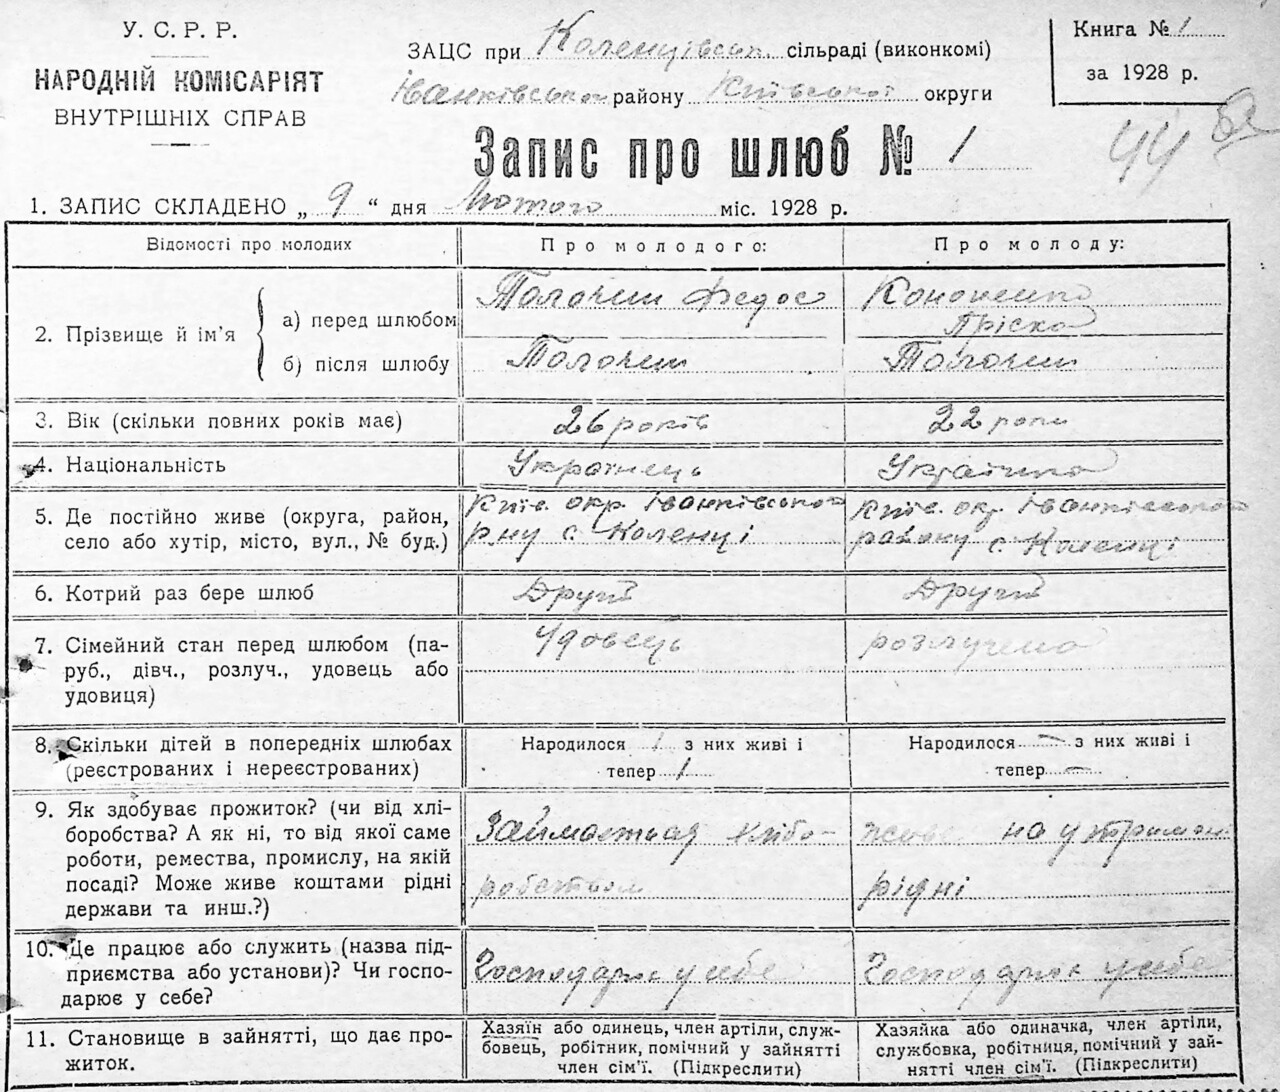 У. С. Р. Р.
НАРОДНІЙ КОМІСАРІЯТ
ВНУТРІШНІХ СПРАВ
ЗАЦС при Коленцівськ. сільраді (виконкомі)
Іванківського району Київської округи
Книга № 1
за 1928 р.
44
Запис про шлюб № 1
1. ЗАПИС СКЛАДЕНО „ 9 “ дня Лютого міс. 1928 р.
Відомості про молодих
Про молодого:
Про молоду:
2. Прізвище й ім’я
а) перед шлюбом
Толочин Федос
Кононенко
Пріска
б) після шлюбу
Толочин
Толочин
3. Вік (скільки повних років має)
26 років
22 роки
4. Національність
Українець
Українка
5. Де постійно живе (округа, район,
село або хутір, місто, вул., № буд.)
Київ. окр. Іванківського
р-ну с. Коленці
Київ. окр. Іванківського
району с. Коленці
6. Котрий раз бере шлюб
Другий
Другий
7. Сімейний стан перед шлюбом (па-
руб., дівч., розлуч., удовець або
удовиця)
Удовець
розлучена
8. Скільки дітей в попередніх шлюбах
(реєстрованих і нереєстрованих)
Народилося 1 з них живі і
тепер 1
Народилося — з них живі і
тепер —
9. Як здобуває прожиток? (чи від хлі-
боробства? А як ні, то від якої саме
роботи, ремества, промислу, на якій
посаді? Може живе коштами рідні
держави та инш.?)
Займається хлібо-
робством
на утриман
рідні
10. Де працює або служить (назва під-
приємства або установи)? Чи госпо-
дарює у себе?
Господарює у себе
Господарює у себе
11. Становище в зайнятті, що дає про-
житок.
Хазяїн або одинець, член артіли, служ-
бовець, робітник, помічний у зайнятті
член сім’ї. (Підкреслити)
Хазяйка або одиначка, член артіли,
службовка, робітниця, помічний у зай-
нятті член сім’ї. (Підкреслити)